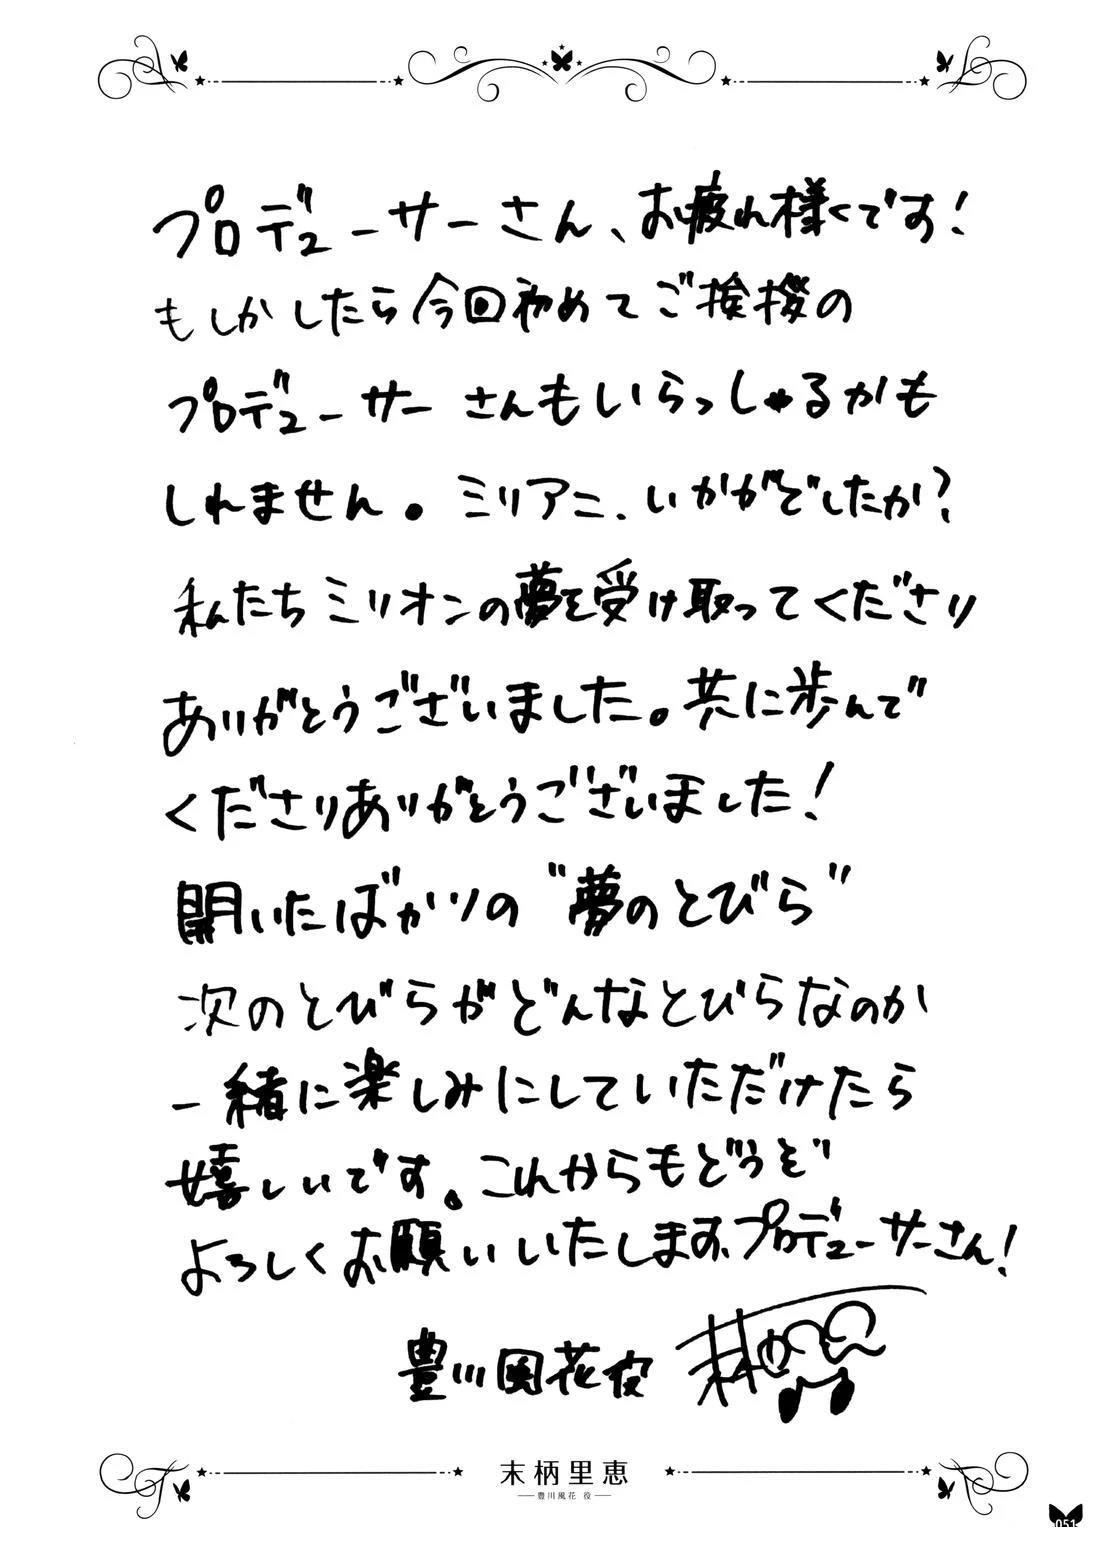 プロデューサーさん、お疲れ様です!
もしかしたら今回初めてご挨拶の
プロデューサーさんもいらっしゃるかも
しれません。ミリアニ、いかがでしたか?
私たちミリオンの夢を受け取ってくださり
ありがとうございました。共に歩んで
くださりありがとうございました!
開いたばかりの"夢のとびら"
次のとびらがどんなとびらなのか
一緒に楽しみにしていただけたら
嬉しいです。これからもどうぞ
よろしくお願いいたします、プロデューサーさん!
豊川風花役
末柄里恵
豊川風花 役
051